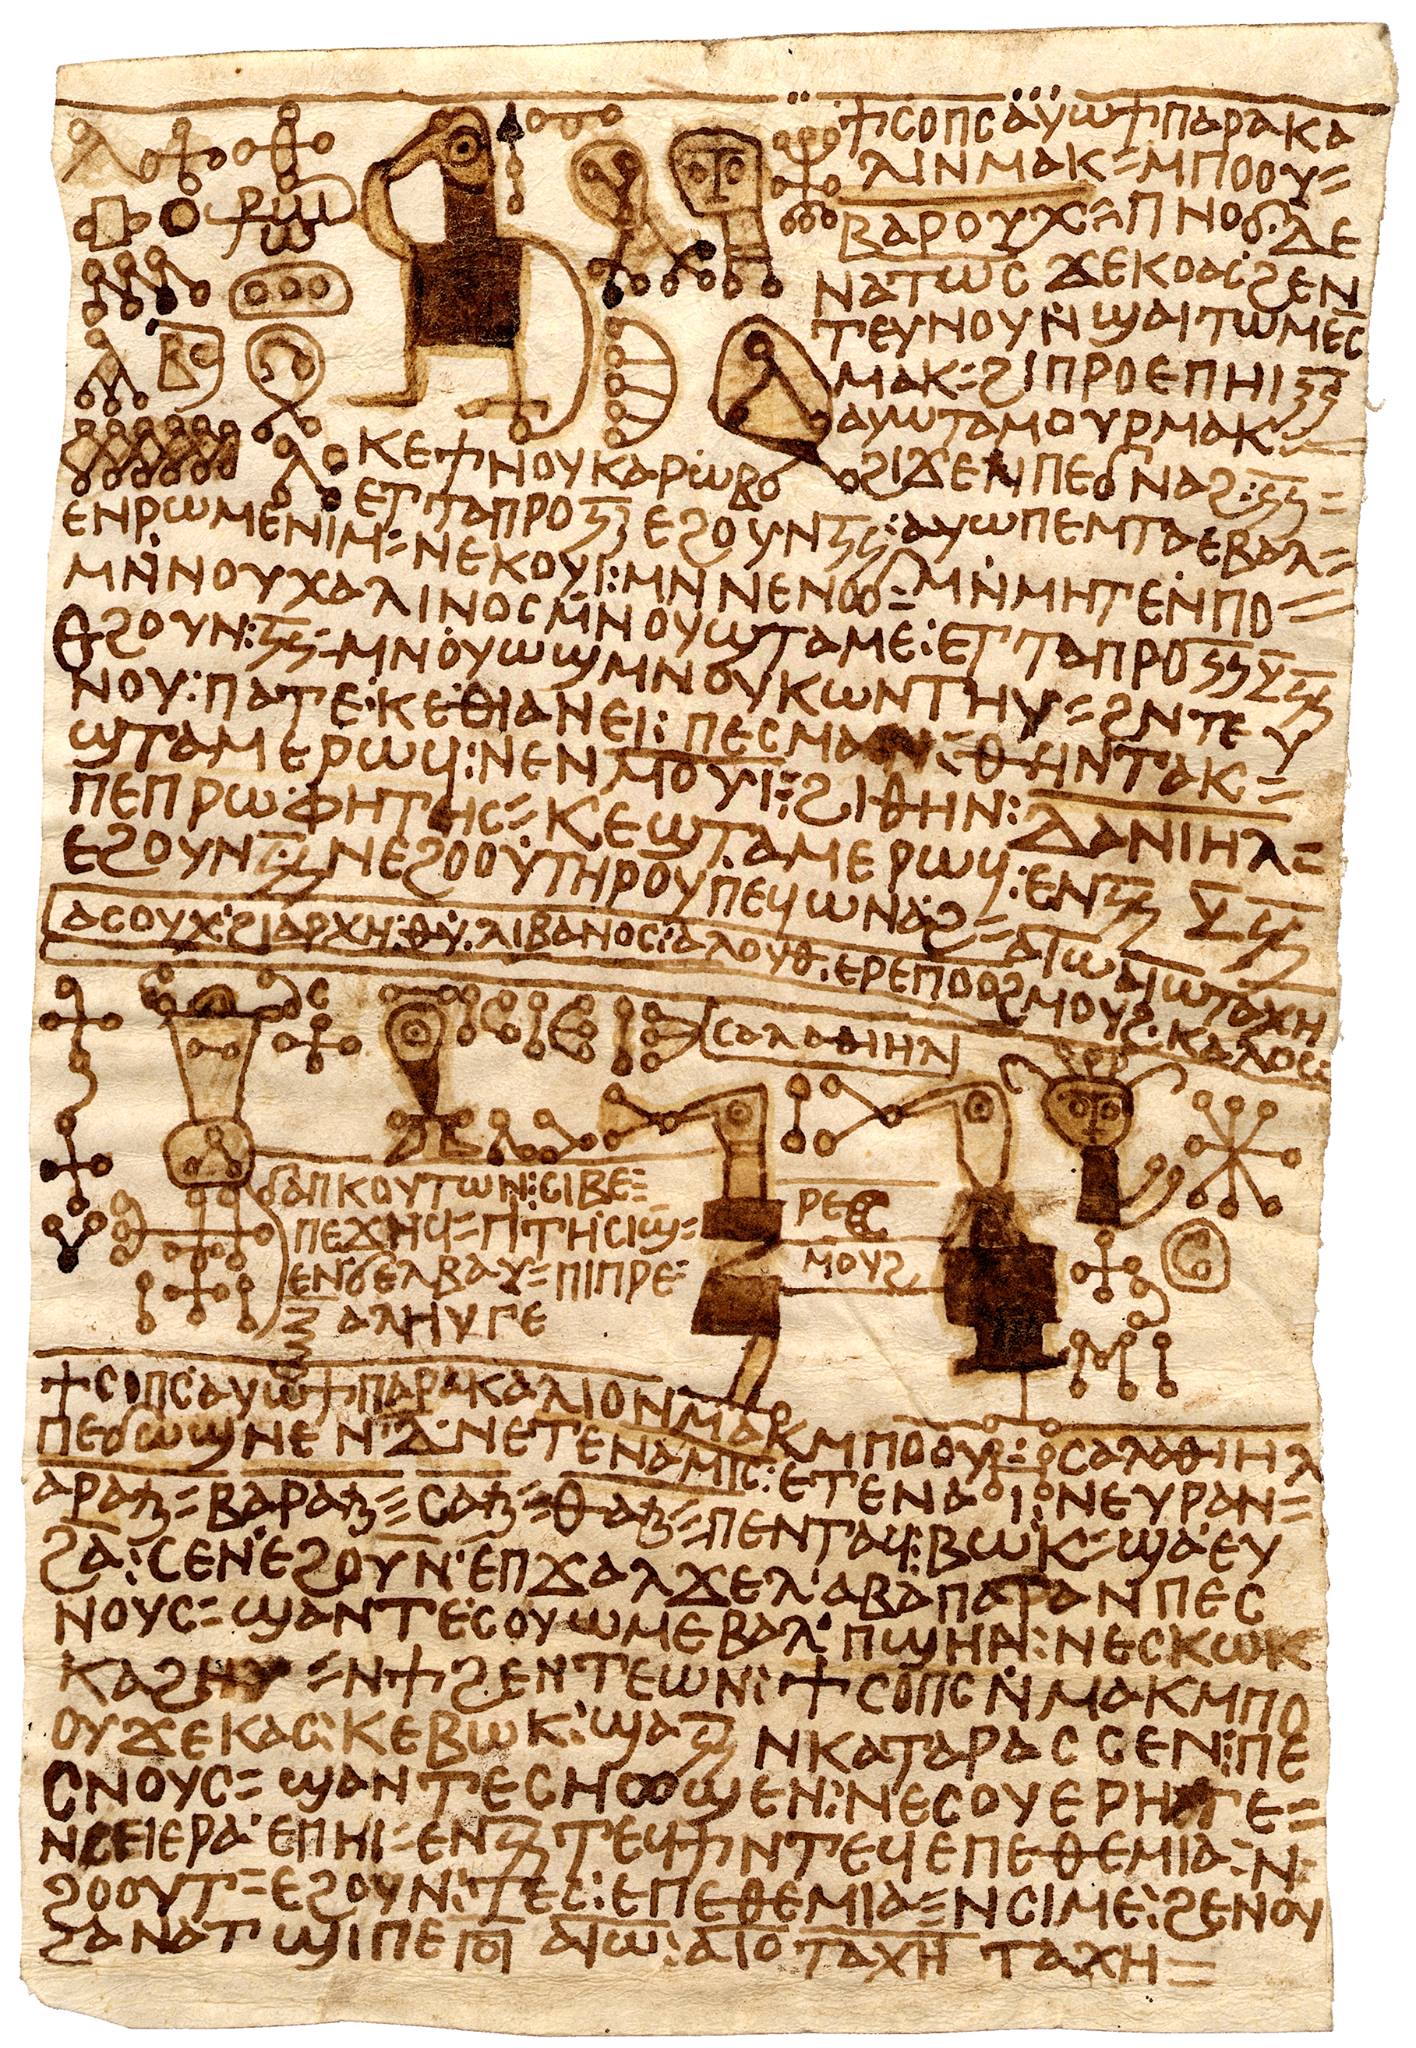 ϯⲥⲟⲡⲥⲁⲩⲱϯⲡⲁⲣⲁⲕⲁ
ⲗⲓⲛⲙⲁⲕ=ⲙⲡⲟⲟⲩ=
ⲃⲁⲣⲟⲩⲭ=ⲡⲛⲟϭ·ⲇⲉ
ⲛⲁⲧⲱⲥ ϫⲉⲕⲟⲁⲥϩⲉⲛ
ⲧⲉⲩⲛⲟⲩⲛ̇ϣⲁⲓⲧⲱⲙⲉⲥ
ⲙⲁⲕ=ϩⲓⲡⲣⲟⲉⲡⲏⲓ
ⲁⲩⲱⲧⲁⲙⲟⲩⲣⲙⲁⲕ
ⲕⲉϯⲛⲟⲩⲕⲁⲣⲱ ϩⲓϫⲉⲛⲡⲉϭⲛⲁϩ:
ⲉⲧⲧⲁⲡⲣⲟ ⲉϩⲟⲩⲛ :ⲁⲩⲱⲡⲉⲙⲧⲁⲉⲃⲁⲗ=
ⲉⲛⲣⲱⲙⲉⲛⲓⲙ=ⲛⲉⲕⲟⲩⲓ:ⲙⲛⲛⲉⲛⲟϭ=ⲙⲛ̇ⲙⲏⲧⲉⲛ̇ⲡⲟ=
ⲙⲛ̇ⲛⲟⲩⲭⲁⲗⲓⲛⲟⲥⲙ̇ⲛⲟⲩϣⲧⲁⲙⲉ:ⲉⲧⲧⲁⲡⲣⲟ
ⲉϩⲟⲩⲛ: =ⲙⲛⲟⲩⲱϣⲙⲛⲟⲩⲕⲱⲛⲧⲏⲩ=ϩⲛⲧⲉⲩ
ⲛⲟⲩ:ⲡⲁⲧⲉ·ⲕⲉⲑⲓⲁⲛⲉⲓ:ⲡⲉⲥⲙⲁ =ⲑⲏⲛⲧⲁⲕ=
ϣⲧⲁⲙⲉⲣⲱϥ:ⲛⲉⲛⲙⲟⲩⲓ=ϩⲓⲑⲏⲛ:ⲇⲁⲛⲓⲏⲗ=
ⲡⲉⲡⲣⲱⲫⲏⲧⲏⲥ=ⲕⲉϣⲧⲁⲙⲉⲣⲱϥ:ⲉⲛ
ⲉϩⲟⲩⲛ ⲛⲉϩⲟⲟⲩⲧⲏⲣⲟⲩⲡⲉϥⲱⲛⲁϩ=ⲁⲓⲱⲁⲓⲱⲧⲁⲭⲏ
ⲁⲥⲟⲩⲭ:ϩⲓⲁⲣⲭⲏ:ⲑⲩ:ⲗⲓⲃⲁⲛⲟⲥ:ⲁⲗⲟⲩⲑ:ⲉⲣⲉⲡⲟⲟϩⲙⲟⲩϩ:ⲕⲁⲗⲱⲥ:
ⲥⲁⲗⲁⲑⲓⲏⲗ
ϭⲁⲡⲕⲟⲩⲧⲱⲛ:ⲥⲓⲃⲉ=
ⲡⲉⲭⲏϥ=ⲡⲧⲏⲥⲓϣ=
ⲉⲛϭⲉⲗⲃⲁⲩ=ⲡⲓⲡⲣⲉ
ⲁⲗⲏⲩⲅⲉ
ⲙⲟⲩϩ
ϯⲥⲟⲡⲥⲁⲩⲱϯⲡⲁⲣⲁⲕⲁⲗⲓⲟⲛⲙⲁⲕⲙⲡⲟⲟⲩ:ⲥⲁⲗⲁⲑⲓⲏⲗ
ⲡⲉϭⲱϣⲛⲉⲛ·ⲇ·ⲛⲉⲧⲉⲛⲁⲙⲓⲥ:ⲉⲧⲉⲛⲁⲓ:ⲛⲉⲩⲣⲁⲛ=
ⲁⲣⲁⲍ=ⲃⲁⲣⲁⲍ=ⲥⲁⲍ=ⲑⲁⲍ=ⲡⲉⲛⲧⲁϥ:ⲃⲱⲕ=ϣⲁⲉⲩ
ϩⲁ:ⲥⲉⲛⲉϩⲟⲩⲛ·ⲉⲡϫⲁⲗϫⲉⲗⲁⲃⲁⲡⲁⲧⲁⲛⲡⲉⲥ
ⲛⲟⲩⲥ=ϣⲁⲛⲧⲉⲥⲟⲩⲱⲙⲉⲃⲁⲗ·ⲡϣⲏⲛ:ⲛⲉⲥⲕⲱⲕ
ⲕⲁϩⲏⲩ=ⲛϯϩⲉⲛⲧⲉⲱⲛ:ϯⲥⲟⲡⲥⲛ̇ⲙⲁⲕⲙⲡⲟ
ⲟⲩϫⲉⲕⲁⲥ:ⲕⲉⲃⲱⲕ:ϣⲁ ⲛⲕⲁⲧⲁⲣⲁⲥⲥⲉⲛ:ⲡⲉ
ⲥⲛⲟⲩⲥ=ϣⲁⲛⲧⲉⲥⲏ ϣⲉⲛ:ⲛⲉⲥⲟⲩⲉⲣⲏⲧⲉ=
ⲛⲥⲉⲓⲉⲣⲁ·ⲉⲡⲏⲓ=ⲉⲛ ⲧⲉϥϯⲛⲧⲉϥⲉⲡⲉⲑⲉⲙⲓⲁ=ⲛ
ϩⲟⲟⲩⲧ=ⲉϩⲟⲩⲛ:ⲧⲉⲥ:ⲉⲡⲉⲑⲉⲙⲓⲁ=ⲛⲥⲓⲙⲉ:ϩⲉⲛⲟⲩ
ϩⲁⲛⲁⲧϣⲓⲡⲉ ⲁⲓⲱ:ⲁⲓⲟⲧⲁⲭⲏ ⲧⲁⲭⲏ=